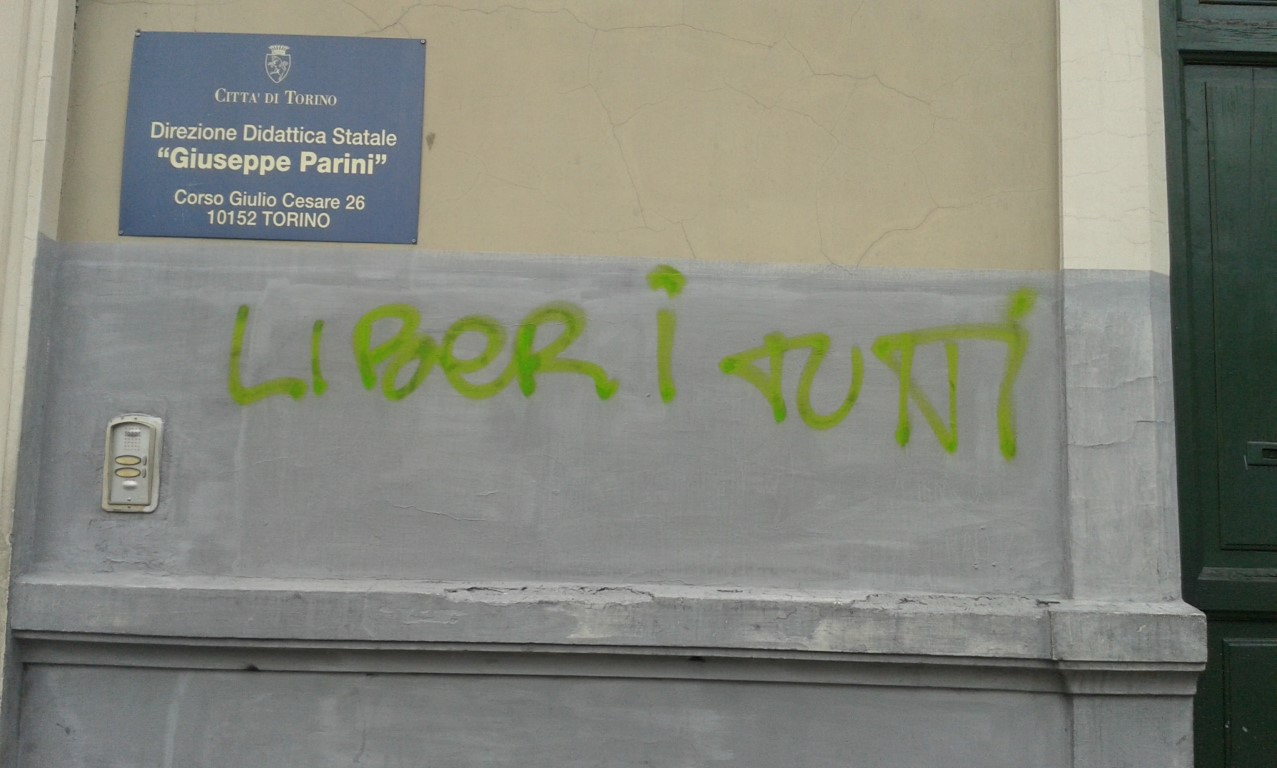 CITTA' DI TORINO
Direzione Didattica Statale
“Giuseppe Parini”
Corso Giulio Cesare 26
10152 TORINO
LIBERI TUTTI